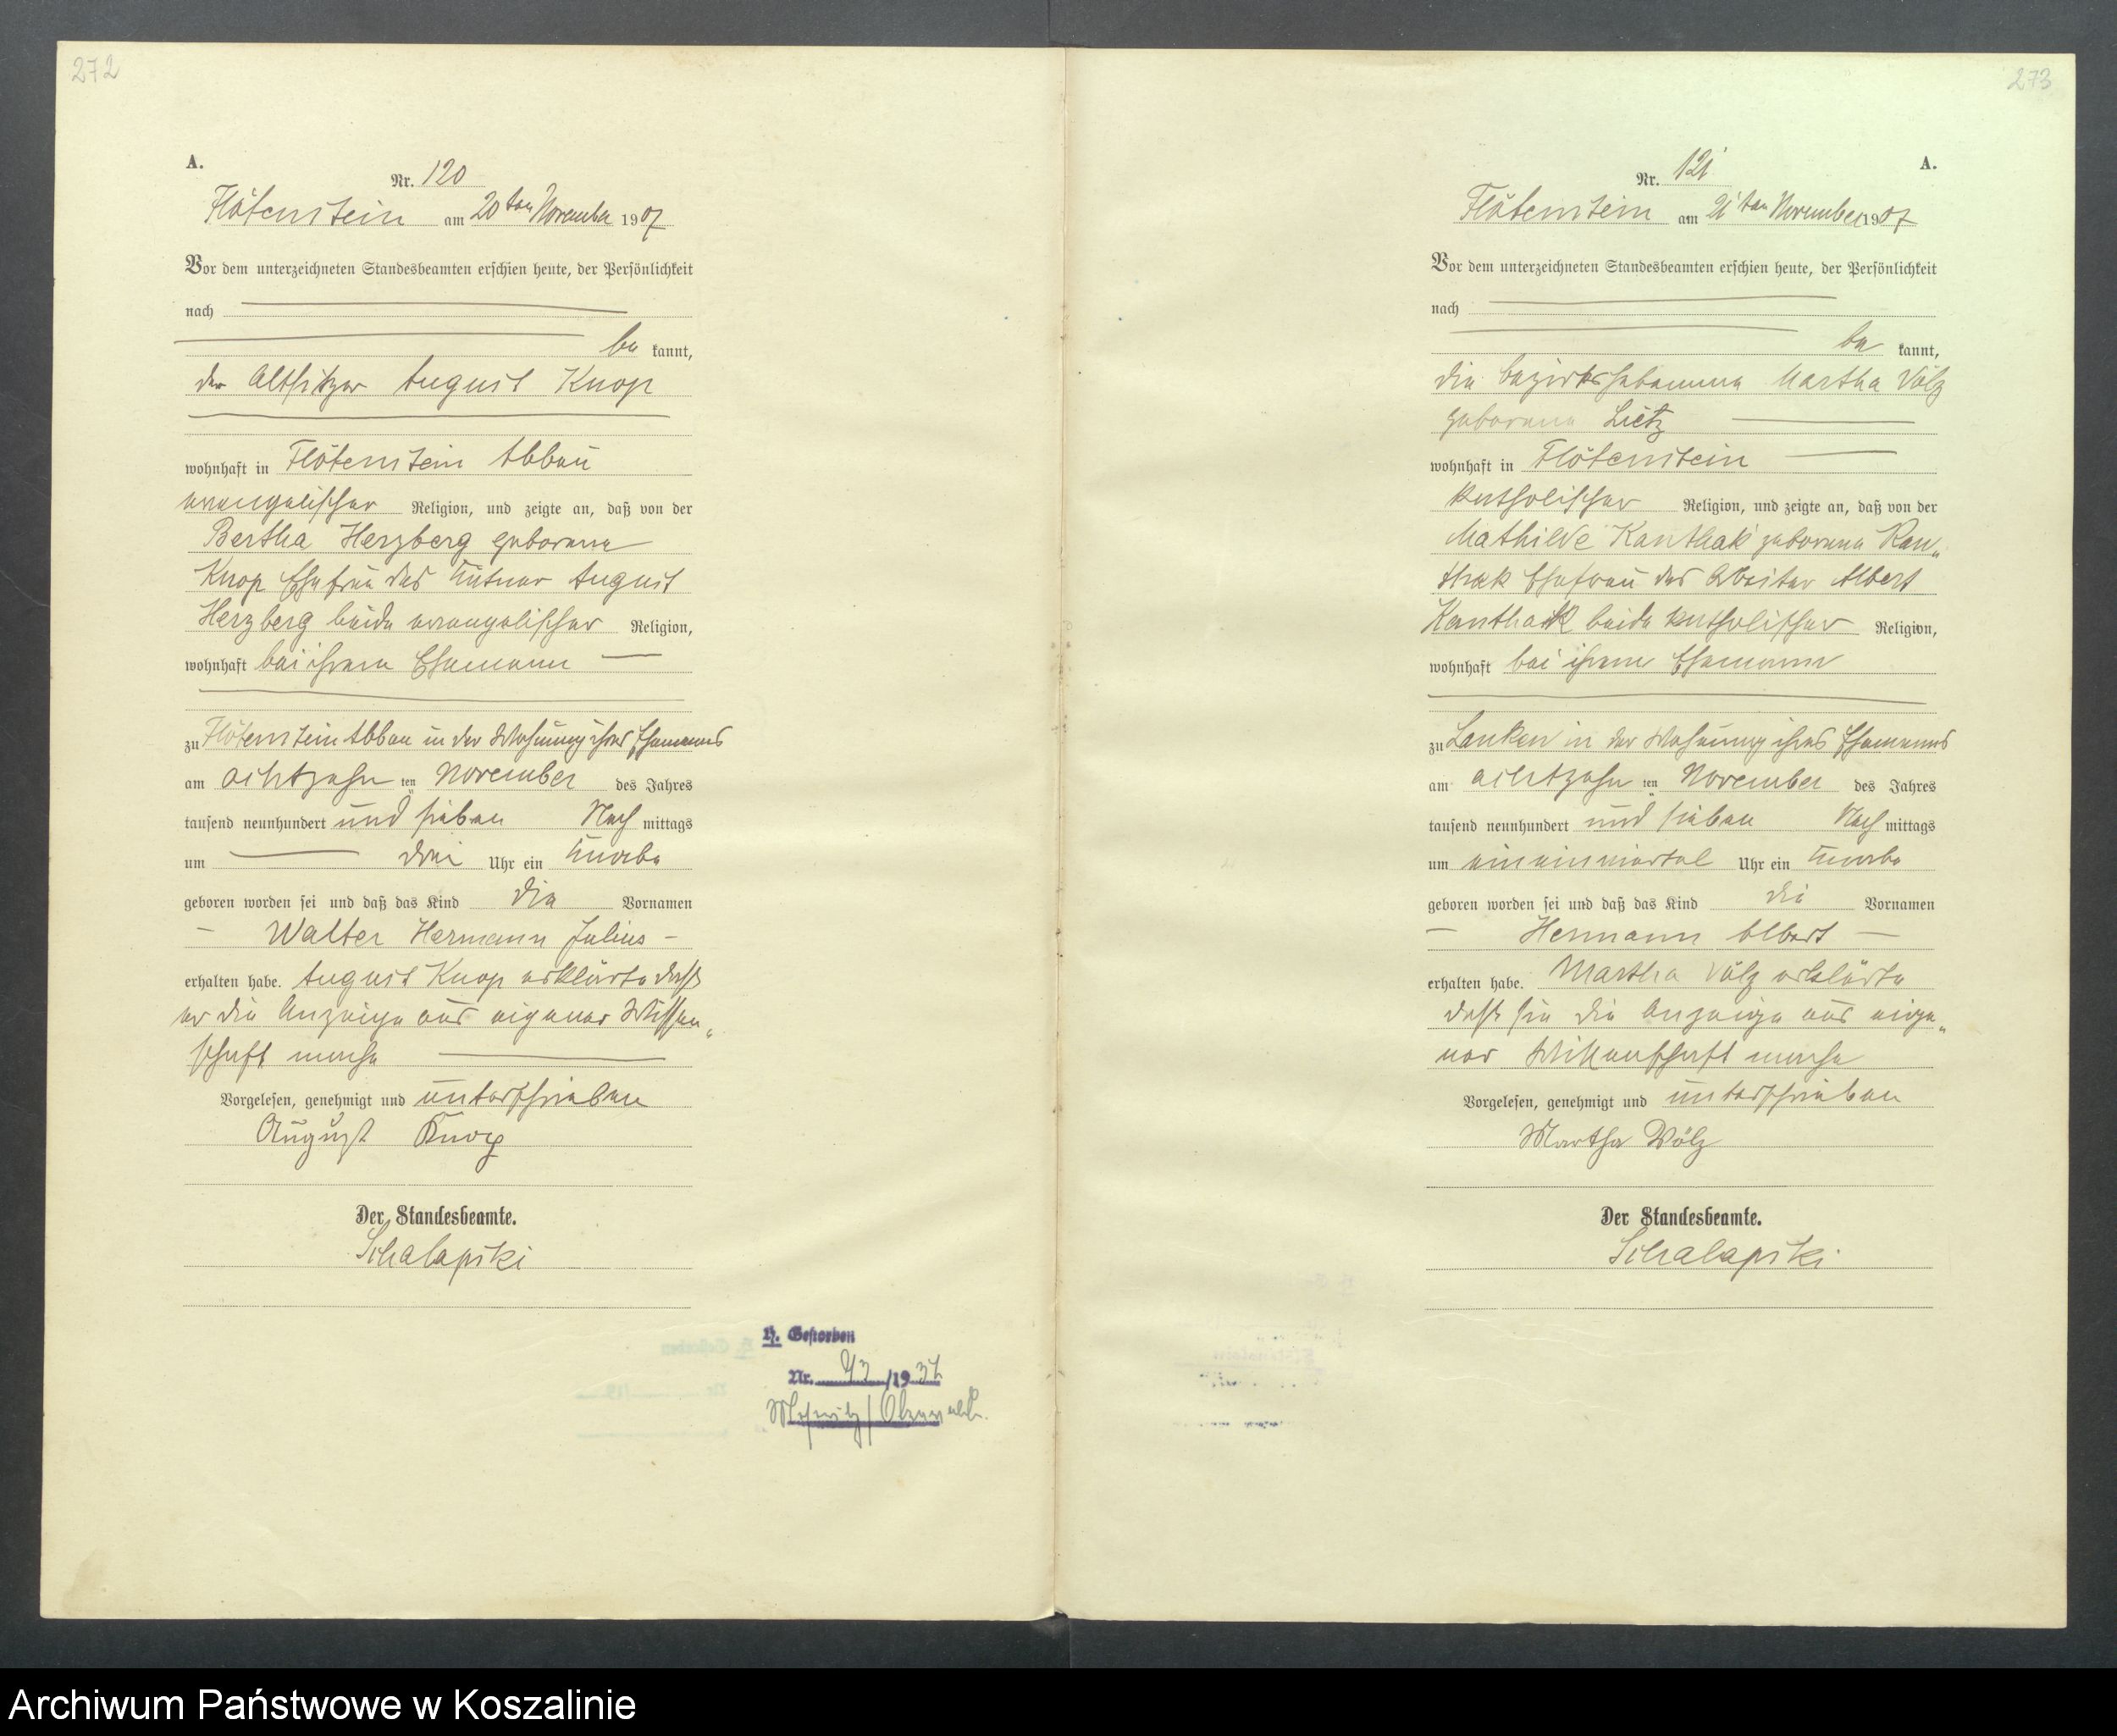 272
A.
Nr. 120
Flötenstein am 20ten November 1907
Vor dem unterzeichneten Standesbeamten erschien heute, der Persönlichkeit
nach
be kannt,
der Altsitzer August Knop
wohnhaft in Flötenstein Abbau
evangelischer Religion, und zeigte an, daß von der
Bertha Herzberg geborene
Knop Ehefrau des Eigentümer August
Herzberg beide evangelischer Religion,
wohnhaft bei ihrem Ehemann
zu Flötenstein Abbau in der Wohnung ihres Ehemanns
am achtzehn ten November des Jahres
tausend neunhundert und sieben Nach mittags
um drei Uhr ein Knabe
geboren worden sei und daß das Kind die Vornamen
Walter Hermann Julius
erhalten habe. August Knop erklärte daß
er die Anzeige aus eigener Wissen„
schaft mache
Vorgelesen, genehmigt und unterschrieben
August Knop
Der Standesbeamte.
Schalapski
Gestorben
Nr. /19 37
273
A.
Nr. 121
Flötenstein am 21ten November 1907
Vor dem unterzeichneten Standesbeamten erschien heute, der Persönlichkeit
nach
be kannt,
die Bezirkshebamme Martha Völz
geborene Lietz
wohnhaft in Flötenstein
katholischer Religion, und zeigte an, daß von der
Mathilde Kanthak geborene Kan„
thak Ehefrau des Arbeiter Albert
Kanthak beide katholischer Religion,
wohnhaft bei ihrem Ehemann
zu Lanken in der Wohnung ihres Ehemanns
am achtzehn ten November des Jahres
tausend neunhundert und sieben Nach mittags
um eineinviertel Uhr ein Knabe
geboren worden sei und daß das Kind die Vornamen
Hermann Albert
erhalten habe. Martha Völz erklärte
daß sie die Anzeige aus eige„
ner Wissenschaft mache
Vorgelesen, genehmigt und unterschrieben
Martha Völz
Der Standesbeamte.
Schalapski
Archiwum Państwowe w Koszalinie